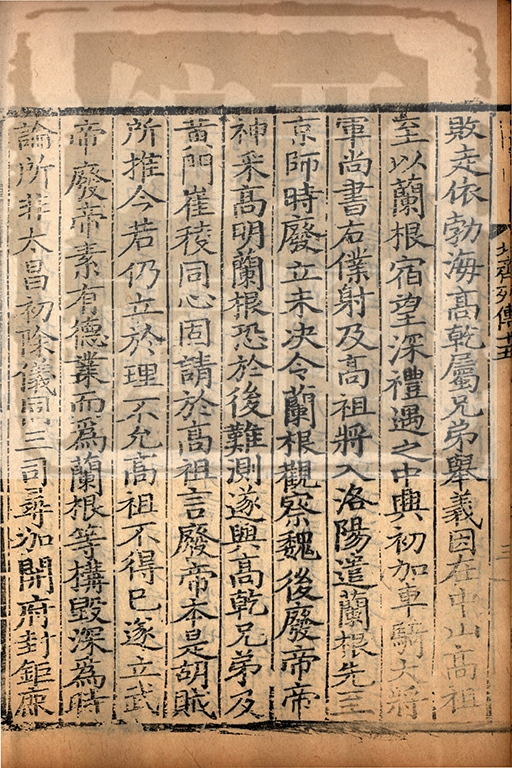 北齊列傳十五
敗走依勃海高乾屬兄弟舉義因在中山高祖
至以蘭根宿望深禮遇之中興初加車騎大將
軍尚書右僕射及高祖將入洛陽遣蘭根先至
京師時廢立未决令蘭根觀察魏後廢帝帝
神采高明蘭根恐於後難測遂與高乾兄弟及
黃門崔㥄同心固請於高祖言廢帝本是胡賊
所推今若仍立於理不允高祖不得已遂立武
帝廢帝素有德業而爲蘭根等搆毀深爲時
論所非太昌初除儀同三司尋加開府封鉅鹿